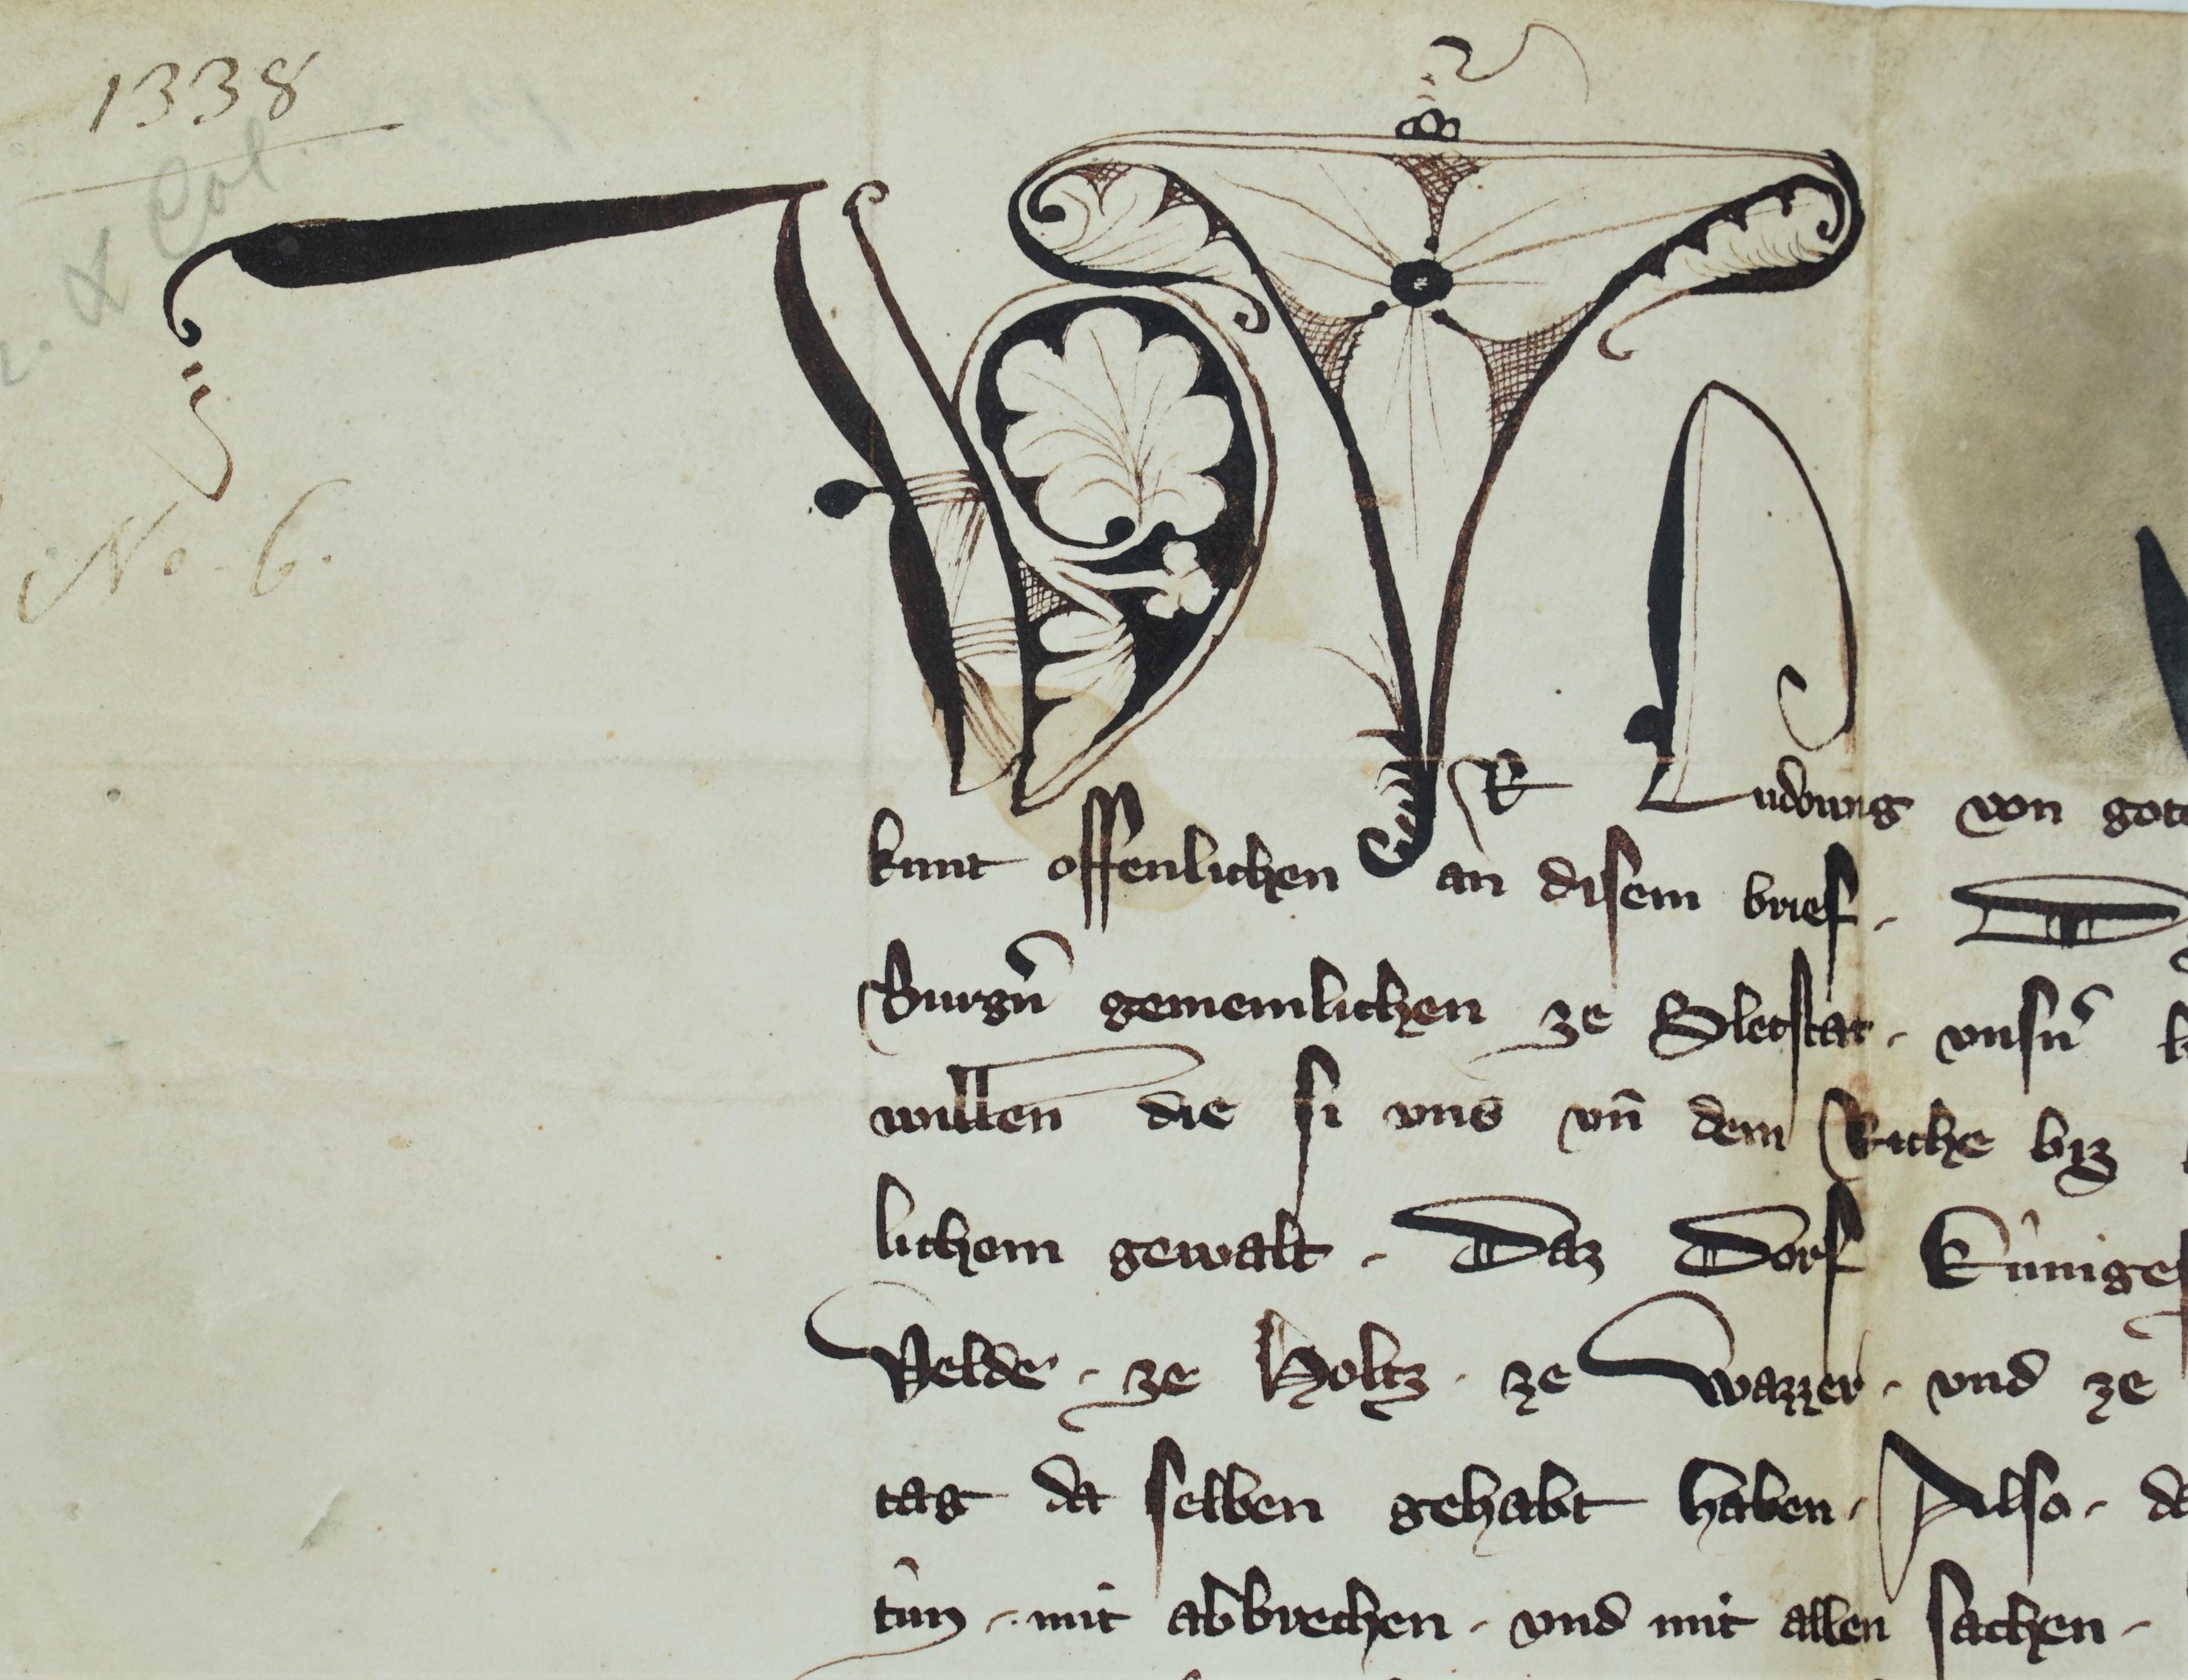 1338
& Col.
No. 6.
WIR Ludowig von gote
kunt offenlichen an disem brief. D
Burgn̄ gemeinlichen ze Sletstat. vnsn̄
willen die si vns vn̄ dem Riche biz
lichem gewalt. Daz Dorf Kúniges
Velde. ze Holtz. ze Wazzer. vnd ze
tag da selben gehabt haben. Also. da
tůn. mit abbrechen. vnd mit allen sachen.